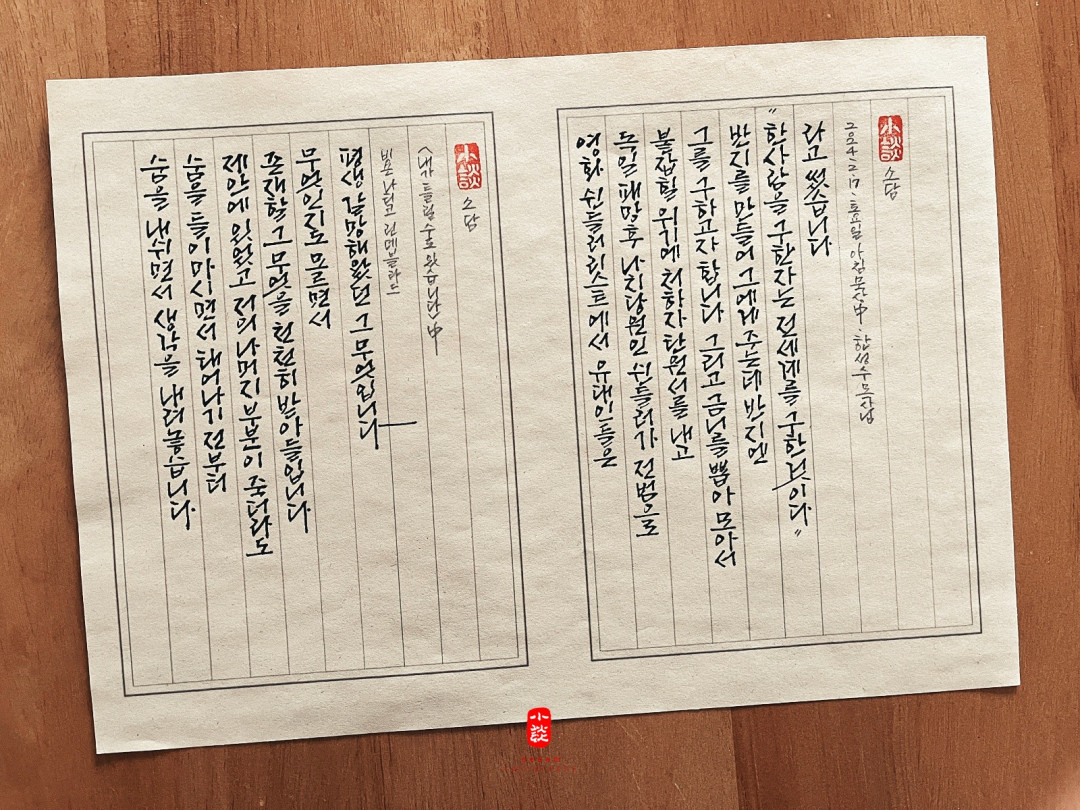 숨을 내쉬면서 생각을 내려놓습니다
숨을 들이마시면서 태어나기 전부터
제안에 있었고 저의 나머지 부분이 죽더라도
존재할 그 무엇을 천천히 받아들입니다
무엇인지도 모르면서
평생 갈망해왔던 그 무엇입니다
비욘
<내가 틀릴 수도 있습니다>中
小談 소담
영화 쉰들러리스트에서 유태인들은
독일 패망후 나치당원인 쉰들러가 전범으로
붙잡힐 위기에 처하자 탄원서를 내고
그를 구하고자 합니다 그리고 금니를 뽑아 모아서
반지를 만들어 그에게 주는데 반지엔
"한사람을 구한자는 전세계를 구한것이다"
라고 썼습니다
2024.2.17. 토요일 아침묵상中, 한성수목사님
小談 소담
小談